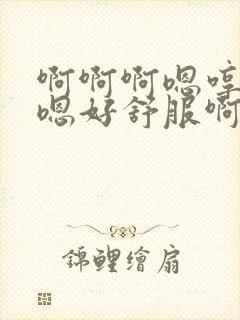 啊啊啊嗯哼
嗯好舒服啊
錦鯉繪扇